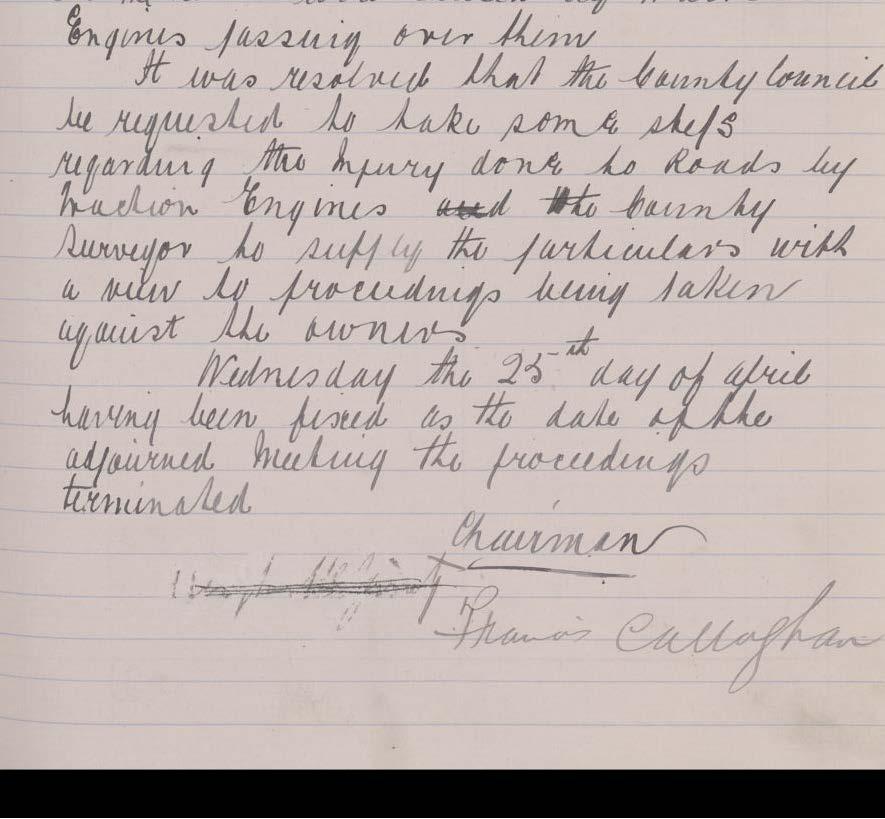 Engines passing over them
It was resolved that the County Council
be requested to take some steps
regarding the Injury done to Roads by
Traction Engines and the County
Surveyor to supply the particulars with
a view to proceedings being taken
against the owners
Wednesday the 25th day of April
having been fixed as the date of the
adjourned Meeting the proceedings
terminated
Chairman
Francis Callaghan